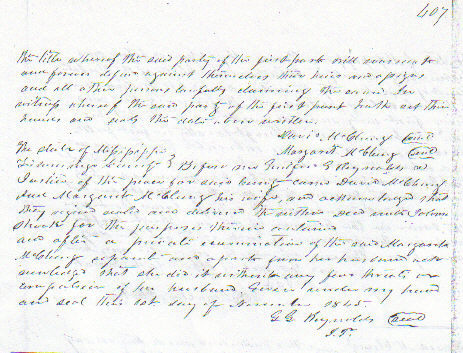 407
the title whereof the said party of the first part will warrant
and forever defend against themselves their heirs and assigns
and all other persons lawfully claiming the same In
witness whereof the said party of the first part hath set their
hands and seals the date above written.
David McClung seal
Margaret McClung seal
The State of Mississippi
County Before me G Reynolds a
Justice of the peace for said County came David McClung
and Margaret McClung his wife, and acknowledged that
they signed sealed and delivered the within Deed unto
for the purposes therein contained
and after a private examination of the said Margaret
McClung separate and apart from her husband ack
nowledged that she did it without any fear threats or
compulsion of her husband. Given under my hand
and seal this 1st day of November 1845
G. G. Reynolds seal
J.P.